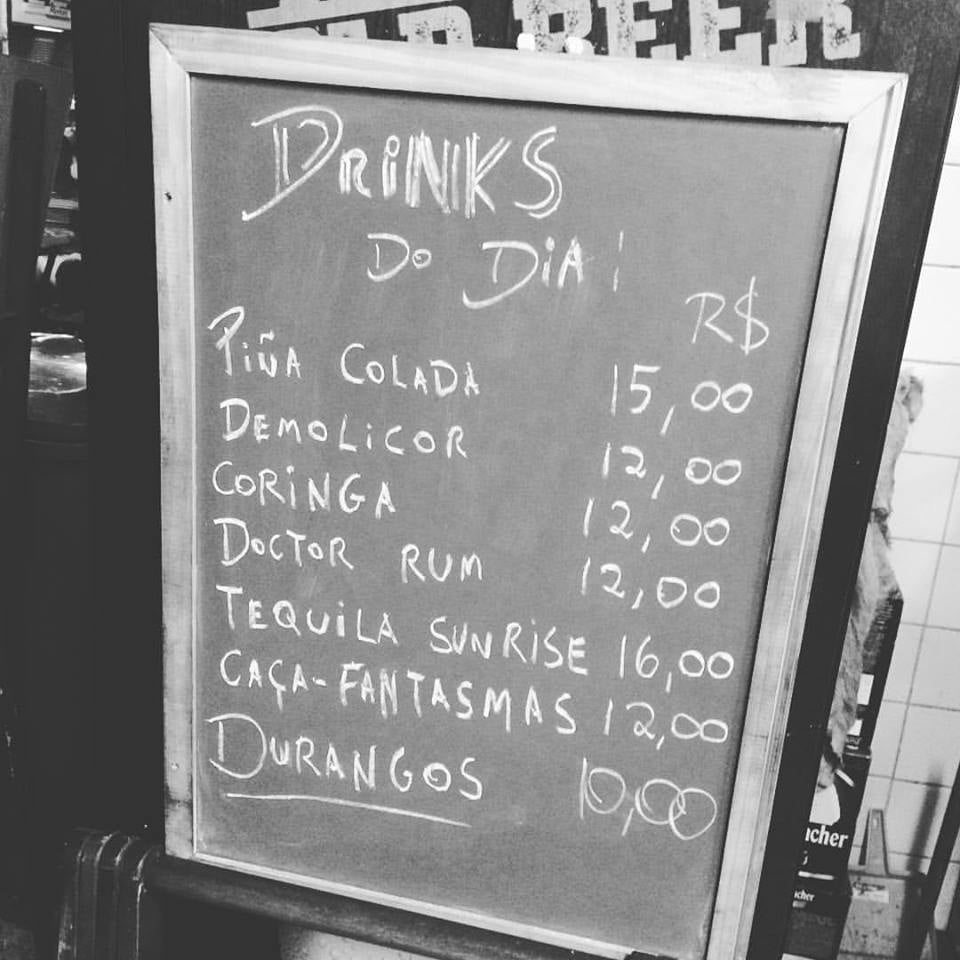 BEER
DRiNKS
Do DiA!
R$
PiñA COLADA 15,00
DEMOLiCOR 12,00
CORiNGA 12,00
DOCTOR RUM 12,00
TEQUiLA SUNRiSE 16,00
CAÇA-FANTASMAS 12,00
DURANGOS 10,00